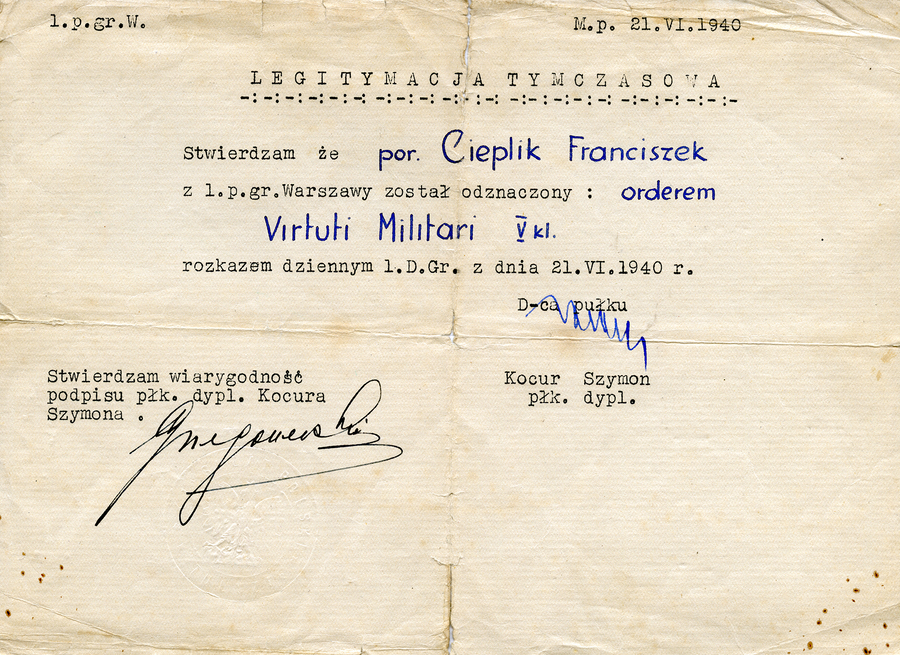 1.p.gr.W. M.p. 21.VI.1940
LEGITYMACJA TYMCZASOWA
-:-:-:-:-:-:-:-:-:-:-:-:-:-:-:-:-:-:-:-:-:-
Stwierdzam że por. Cieplik Franciszek
z 1.p.gr.Warszawy został odznaczony : orderem
Virtuti Militari V kl.
rozkazem dziennym 1.D.Gr. z dnia 21.VI.1940 r.
D-ca pułku
Stwierdzam wiarygodność
podpisu płk. dypl. Kocura
Szymona .
Kocur Szymon
płk. dypl.